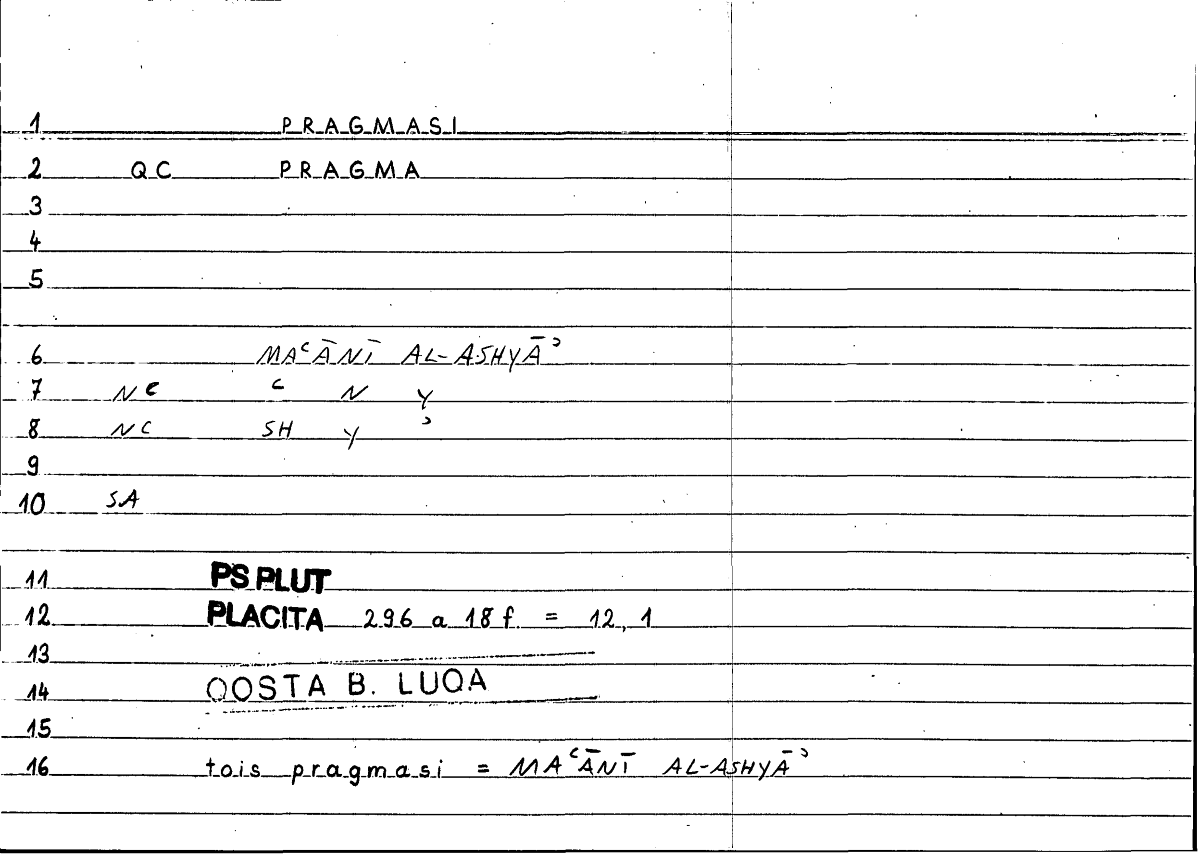 1 PRAGMASI
2 QC PRAGMA
3
4
5
6 MAʿĀNĪ AL-ASHYĀʾ
7 NC ʿ N Y
8 NC SH Y ʾ
9
10 SA
11 PS PLUT
12 PLACITA 296 a 18 f. = 12, 1
13
14 QOSTA B. LUQA
15
16 tois pragmasi = MAʿĀNĪ AL-ASHYĀʾ